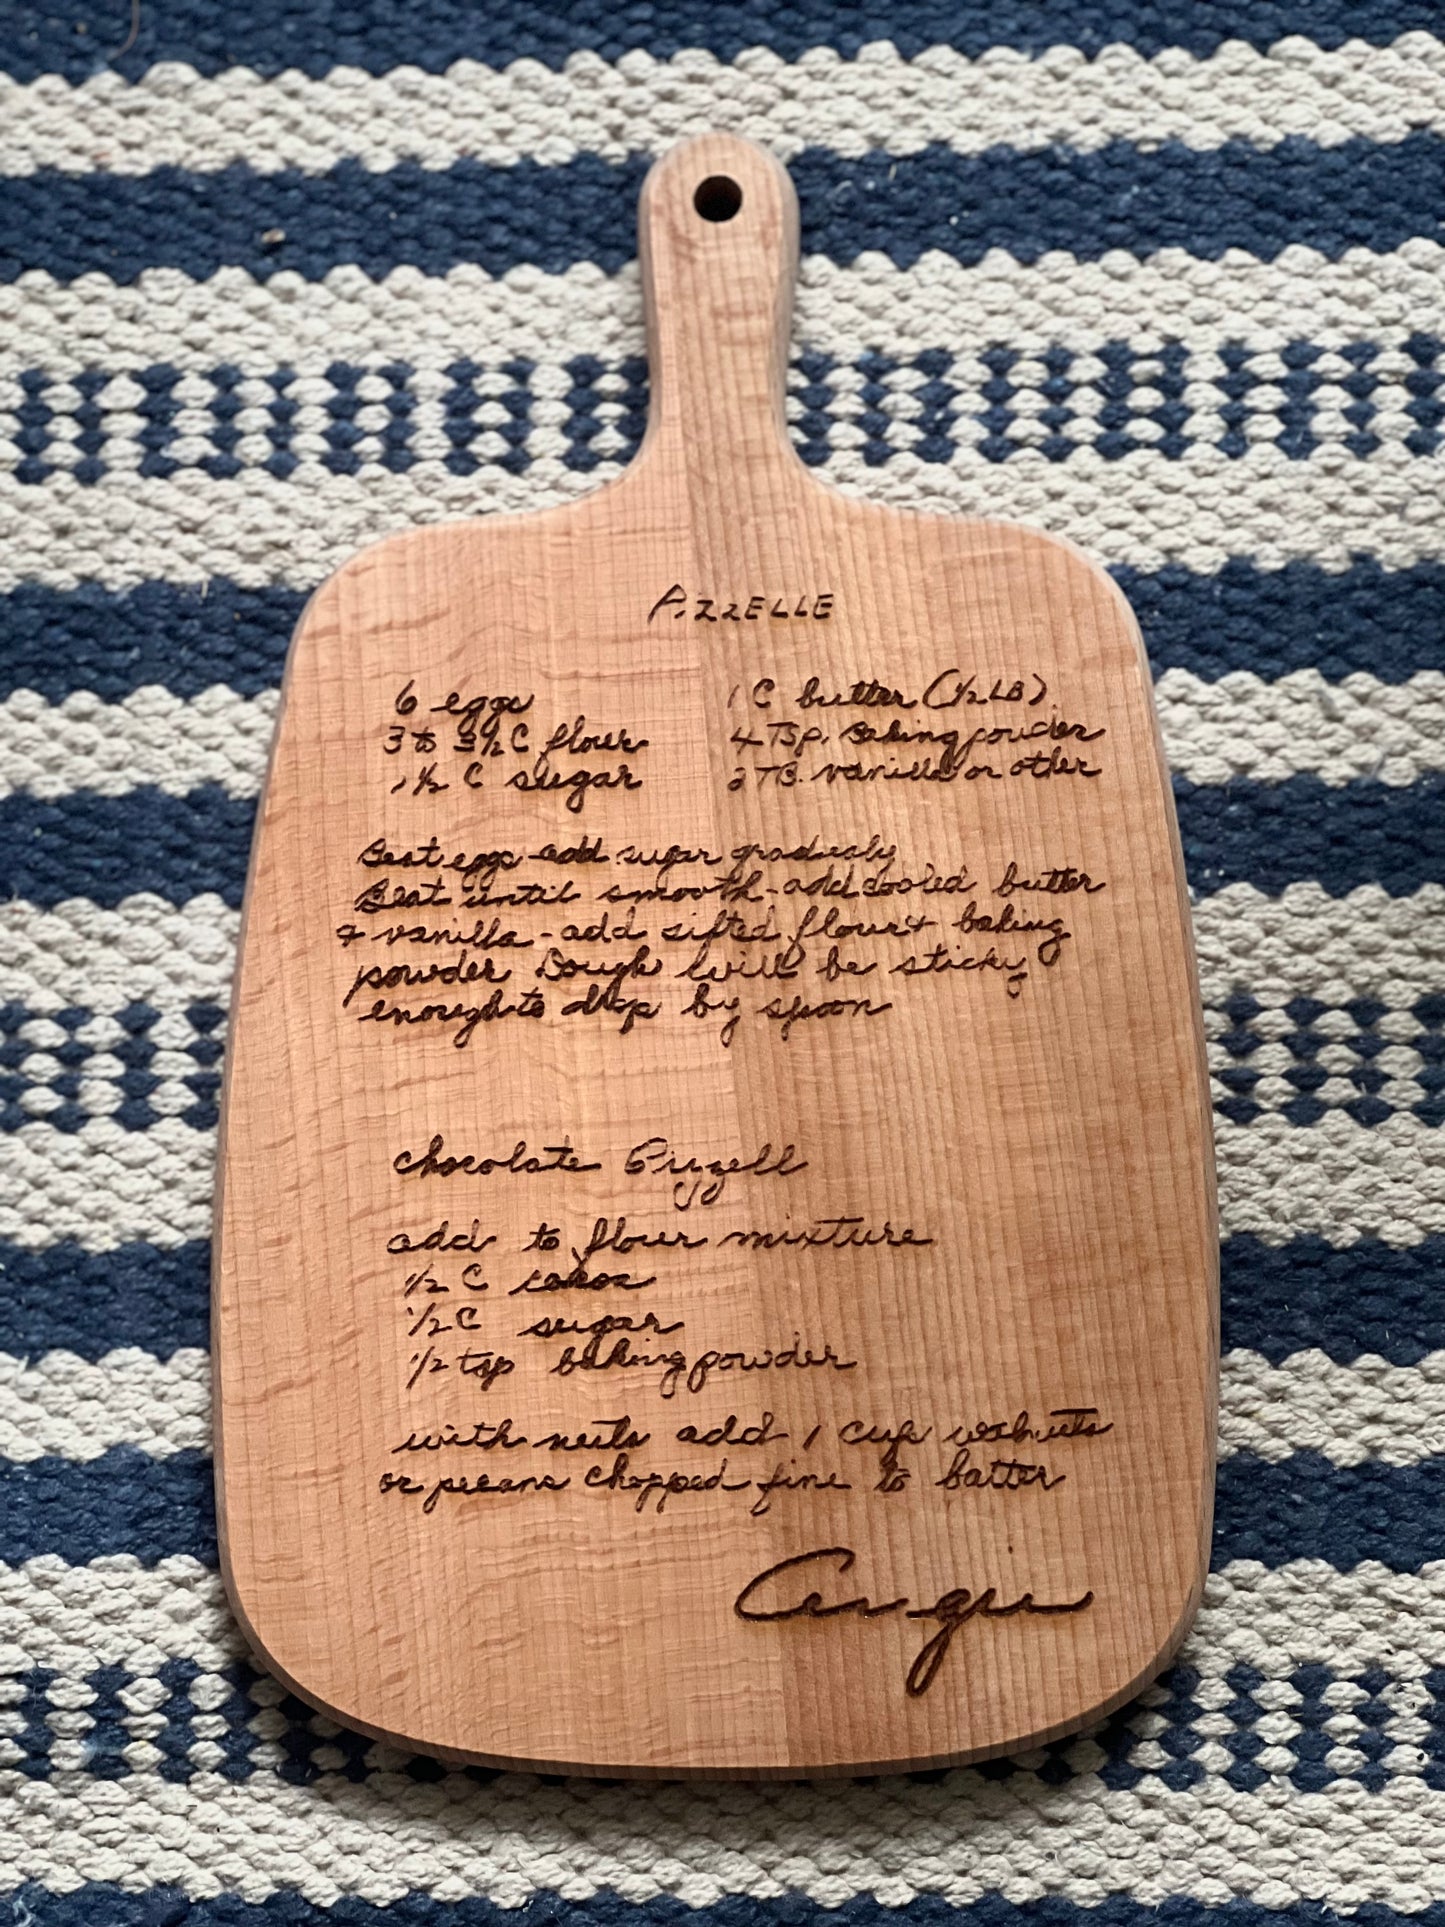 PIZZELLE
6 eggs
3 to 3½ C flour
1½ C sugar
1 C butter (½ LB)
4 Tsp. Baking powder
2 TB. vanilla or other
Beat eggs add sugar gradualy
Beat until smooth - add cooled butter
+ vanilla - add sifted flour + baking
powder Dough will be sticky
enough to drop by spoon
chocolate Pizzell
add to flour mixture
1/2 C cocoa
1/2 C sugar
1/2 tsp baking powder
with nuts add 1 cup walnuts
or pecans chopped fine to batter
Angie